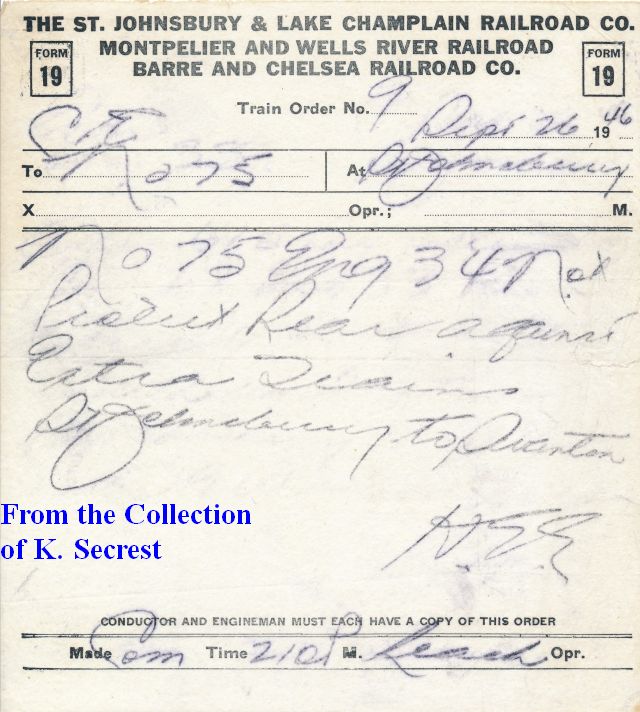 THE ST. JOHNSBURY & LAKE CHAMPLAIN RAILROAD CO.
MONTPELIER AND WELLS RIVER RAILROAD
BARRE AND CHELSEA RAILROAD CO.
FORM 19
FORM 19
Train Order No. 9
Sept 26 1946
C&E
To No 75 At St Johnsbury
X Opr.; M.
No 75 Eng 34 Not
Protect Rear against
Extra Trains
St Johnsbury to Swanton
H.E.E.
From the Collection
of K. Secrest
CONDUCTOR AND ENGINEMAN MUST EACH HAVE A COPY OF THIS ORDER
Made Com Time 210 P M. Leach Opr.